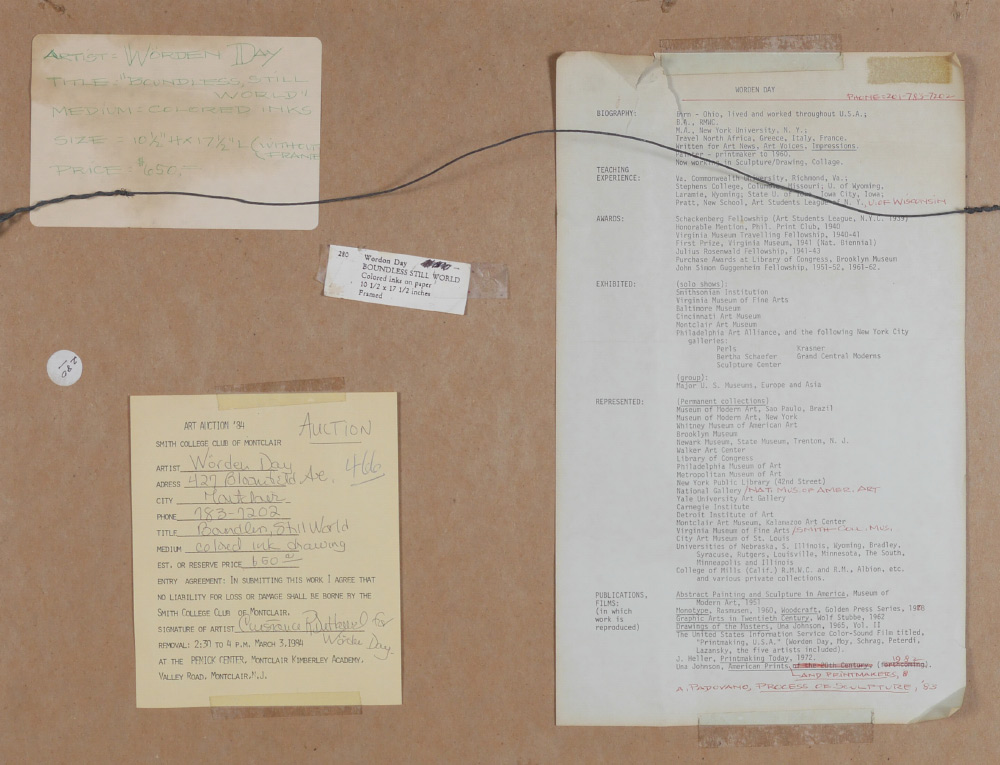 ARTIST: WORDEN DAY
TITLE: "BOUNDLESS, STILL
WORLD"
MEDIUM: COLORED INKS
SIZE: 10½"H X 17½"L (WITHOUT
FRAME
PRICE: $650.
280 Wordon Day
BOUNDLESS STILL WORLD
Colored inks on paper
10 1/2 x 17 1/2 inches
Framed
ART AUCTION '84 AUCTION
SMITH COLLEGE CLUB OF MONTCLAIR
466
ARTIST Worden Day
ADRESS 427 Ave.
CITY Montclair
PHONE 783-7202
TITLE Boundless, Still World
MEDIUM colored ink drawing
EST. OR RESERVE PRICE 650
ENTRY AGREEMENT: IN SUBMITTING THIS WORK I AGREE THAT
NO LIABILITY FOR LOSS OR DAMAGE SHALL BE BORNE BY THE
SMITH COLLEGE CLUB OF MONTCLAIR.
SIGNATURE OF ARTIST for
Worden Day
REMOVAL: 2:30 TO 4 P.M. MARCH 3, 1984
AT THE PENICK CENTER, MONTCLAIR KIMBERLEY ACADEMY,
VALLEY ROAD, MONTCLAIR, N.J.
WORDEN DAY
PHONE: 201-783-7202
BIOGRAPHY: Born - Ohio, lived and worked throughout U.S.A.;
B.A., RMWC.
M.A., New York University, N. Y.;
Travel North Africa, Greece, Italy, France.
Written for Art News, Art Voices, Impressions.
Painter - printmaker to 1960.
Now working in Sculpture/Drawing, Collage.
TEACHING
EXPERIENCE: Va. Commonwealth University, Richmond, Va.;
Stephens College, Columbia, Missouri; U. of Wyoming,
Laramie, Wyoming; State U. of Iowa, Iowa City, Iowa;
Pratt, New School, Art Students League of N. Y., U. OF WISCONSIN
AWARDS: Schackenberg Fellowship (Art Students League, N.Y.C. 1939)
Honorable Mention, Phil. Print Club, 1940
Virginia Museum Travelling Fellowship, 1940-41
First Prize, Virginia Museum, 1941 (Nat. Biennial)
Julius Rosenwald Fellowship, 1941-43
Purchase Awards at Library of Congress, Brooklyn Museum
John Simon Guggenheim Fellowship, 1951-52, 1961-62.
EXHIBITED: (solo shows):
Smithsonian Institution
Virginia Museum of Fine Arts
Baltimore Museum
Cincinnati Art Museum
Montclair Art Museum
Philadelphia Art Alliance, and the following New York City
galleries:
Perls Krasner
Bertha Schaefer Grand Central Moderns
Sculpture Center
(group):
Major U. S. Museums, Europe and Asia
REPRESENTED: (Permanent collections)
Museum of Modern Art, Sao Paulo, Brazil
Museum of Modern Art, New York
Whitney Museum of American Art
Brooklyn Museum
Newark Museum, State Museum, Trenton, N. J.
Walker Art Center
Library of Congress
Philadelphia Museum of Art
Metropolitan Museum of Art
New York Public Library (42nd Street)
National Gallery / NAT. MUS. OF AMER. ART
Yale University Art Gallery
Carnegie Institute
Detroit Institute of Art
Montclair Art Museum, Kalamazoo Art Center
Virginia Museum of Fine Arts / SMITH COLL. MUS.
City Art Museum of St. Louis
Universities of Nebraska, S. Illinois, Wyoming, Bradley,
Syracuse, Rutgers, Louisville, Minnesota, The South,
Minneapolis and Illinois
College of Mills (Calif.) R.M.W.C. and R.M., Albion, etc.
and various private collections.
PUBLICATIONS, Abstract Painting and Sculpture in America, Museum of
FILMS: Modern Art, 1951
(in which Monotype, Rasmusen, 1960, Woodcraft, Golden Press Series, 1968
work is Graphic Arts in Twentieth Century, Wolf Stubbe, 1962
reproduced) Drawings of the Masters, Una Johnson, 1965, Vol. II
The United States Information Service Color-Sound Film titled,
"Printmaking, U.S.A." (Worden Day, Moy, Schrag, Peterdi,
Lazansky, the five artists included).
J. Heller, Printmaking Today, 1972.
Una Johnson, American Prints of the 20th Century, (forthcoming).
AND PRINTMAKERS,
A. PADOVANO, PROCESS OF SCULPTURE, '83